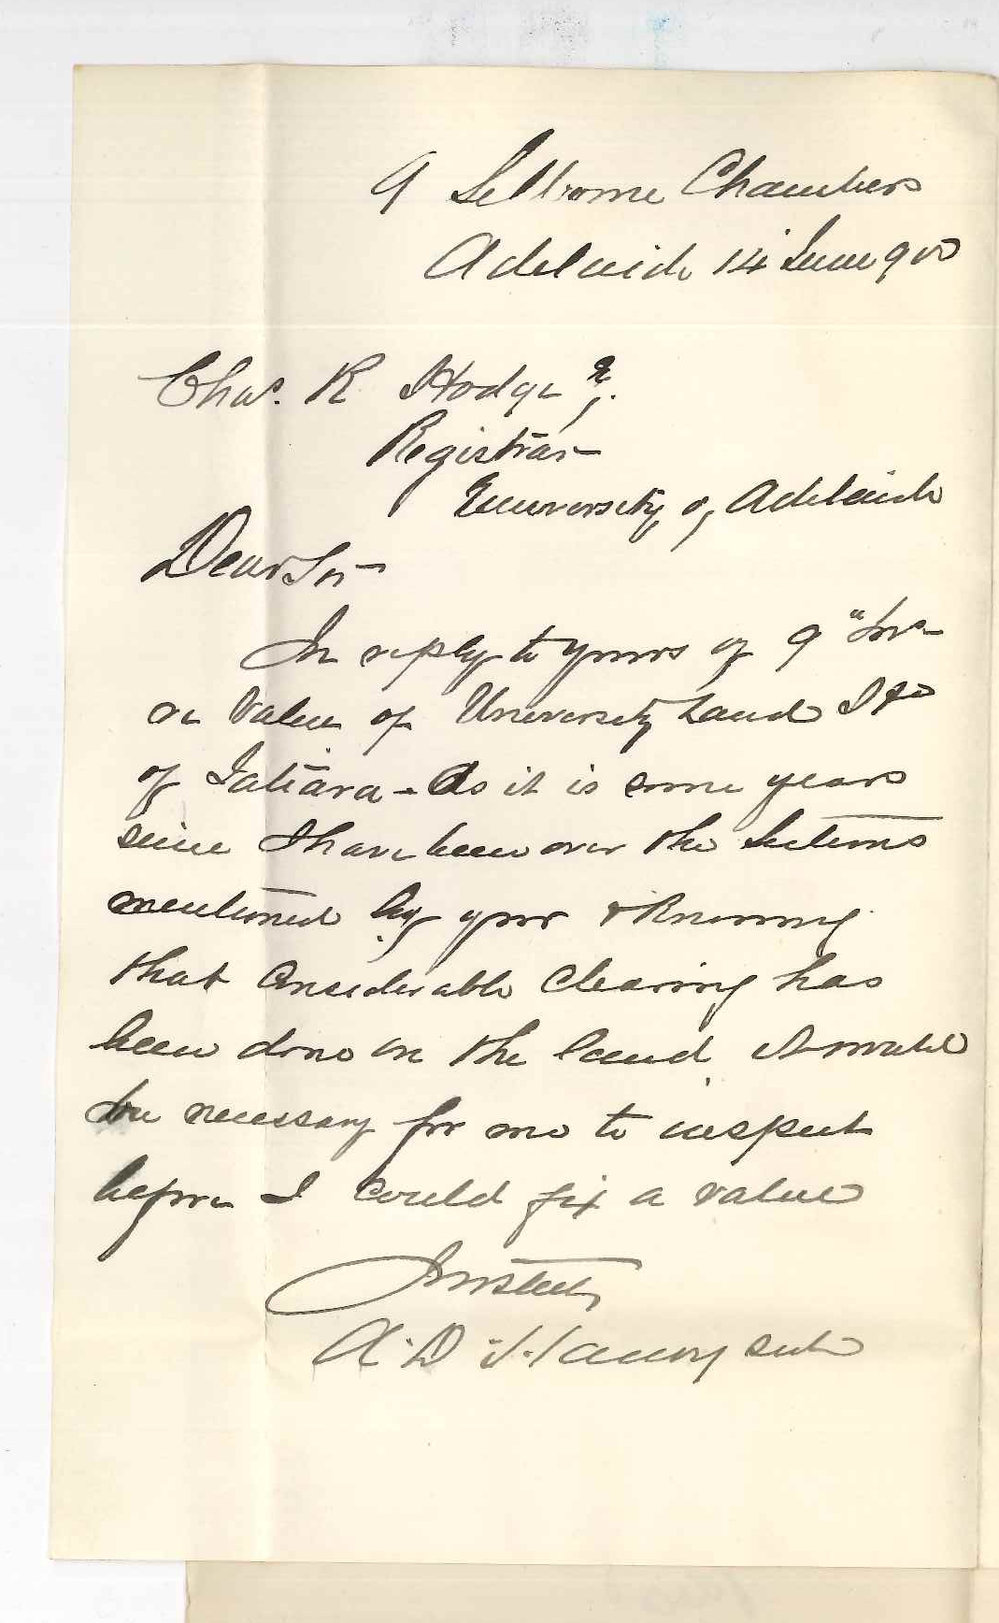 9 Selborne Chambers
Adelaide 14 June 900
Chas. R Hodge
Registrar
University of Adelaide
Dear Sir
In reply to yours of 9"
on value of University Land
of Tatiara - As it is some years
since I have been over the Sections
mentioned by you & Knowing
that Considerable Clearing has
been done on the land it would
be necessary for me to inspect
before I could fix a value
Yrs truly
A. D.